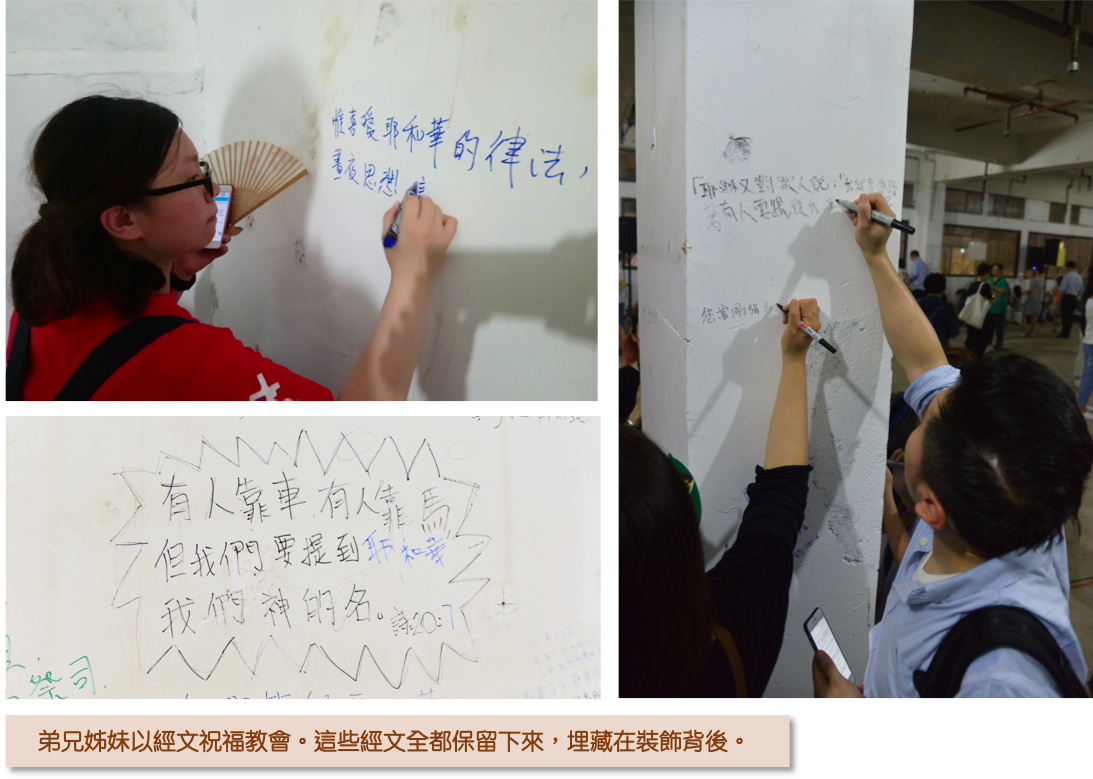 惟喜愛耶和華的律法，
晝夜思想
「耶穌又對眾人說：「
若有人要跟從
您當剛強
有人靠車 有人靠馬
但我們要提到耶和華
我們神的名。詩20:7
祭司
弟兄姊妹以經文祝福教會。這些經文全都保留下來，埋藏在裝飾背後。